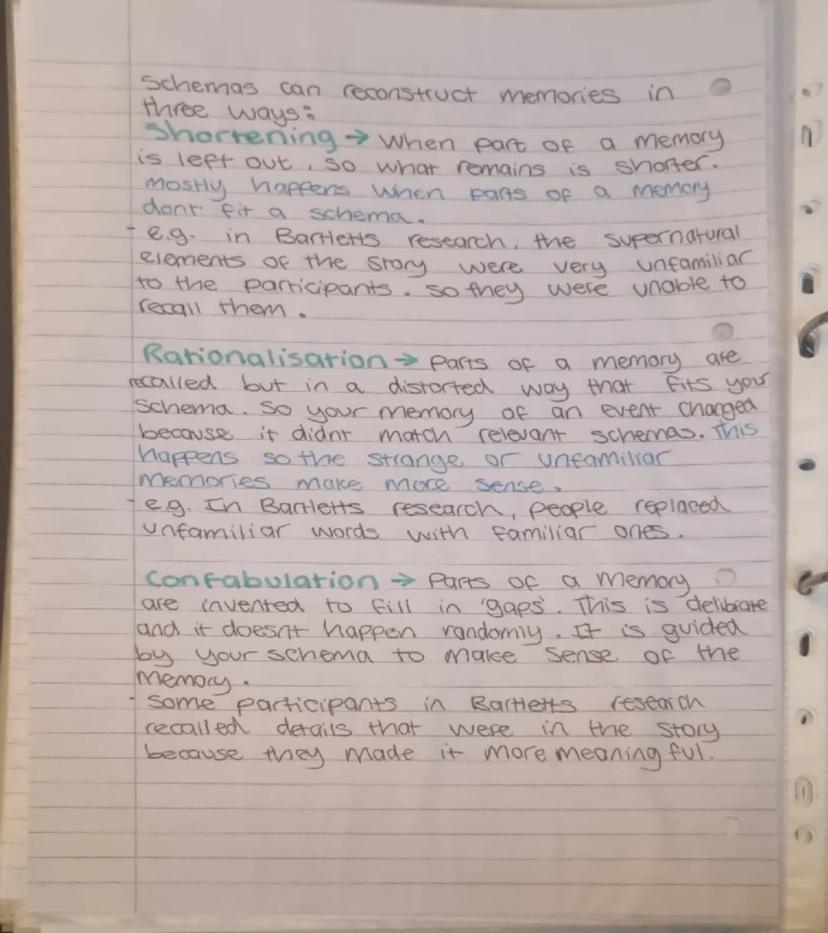 Schemas can reconstruct memories in
three ways:
Shortening → When part of a memory
is left out, so what remains is shorter.
Mostly happens when parts of a memory
dont fit a schema.
- e.g. in Bartletts research, the supernatural
elements of the story were very unfamiliar
to the participants. so they were unable to
recall them.
Rationalisation → Parts of a memory are
recalled but in a distorted way that fits your
schema. So your memory of an event changed
because it didnt match relevant schemas. This
happens so the strange or unfamiliar
memories make more sense.
- e.g. In Bartletts research, people replaced
unfamiliar words with familiar ones.
Confabulation → Parts of a memory
are invented to fill in 'gaps'. This is delibrate
and it doesnt happen randomly. It is guided
by your schema to make sense of the
memory.
- Some participants in Bartletts research
recalled details that were in the story
because they made it more meaningful.